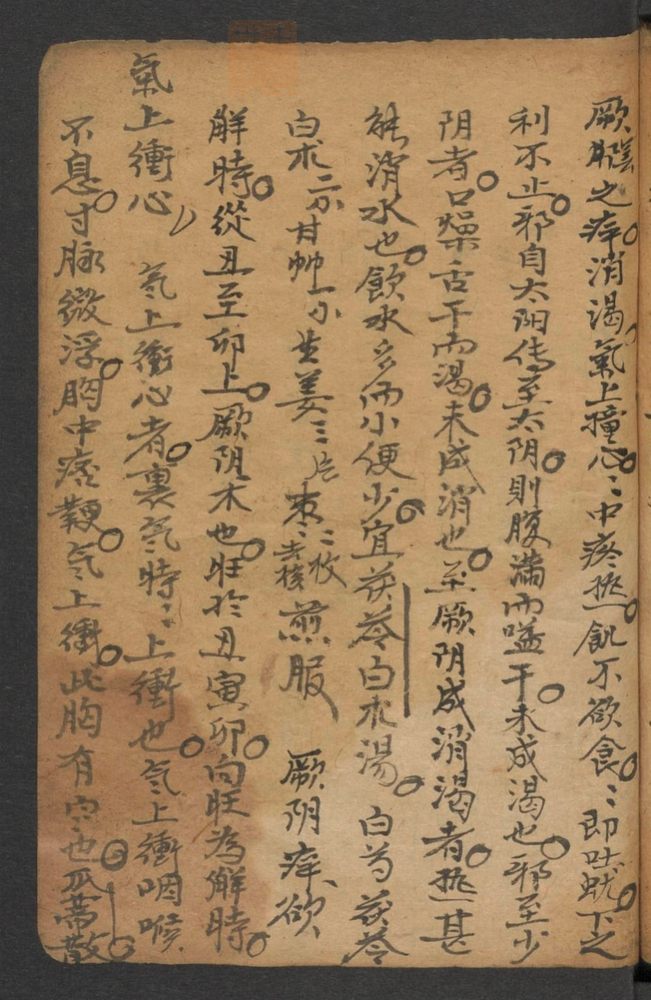 厥阴之病。消渴。氣上撞心。〻中疼热。飢不欲食。〻即吐蚘。下之
利不止。邪自太阳传至太阴。則腹满而嗌干。未成渴也。邪至少
阴者。口燥舌干而渴。未成消也。至厥阴成消渴者。热甚
能消水也。飲水多而小便少。宜茯苓白朮湯。白芍茯苓
白朮二分甘艸一分生姜三片枣二枚去核煎服 厥阴病欲
解時。從丑至卯上。厥阴木也。旺於丑寅卯。向旺為解時。
氣上衝心 氣上衝心者。裏氣時〻上衝也。氣上衝咽喉
不息。寸脉微浮。胸中痞鞕。氣上衝。此胸有寒也。瓜蒂散。